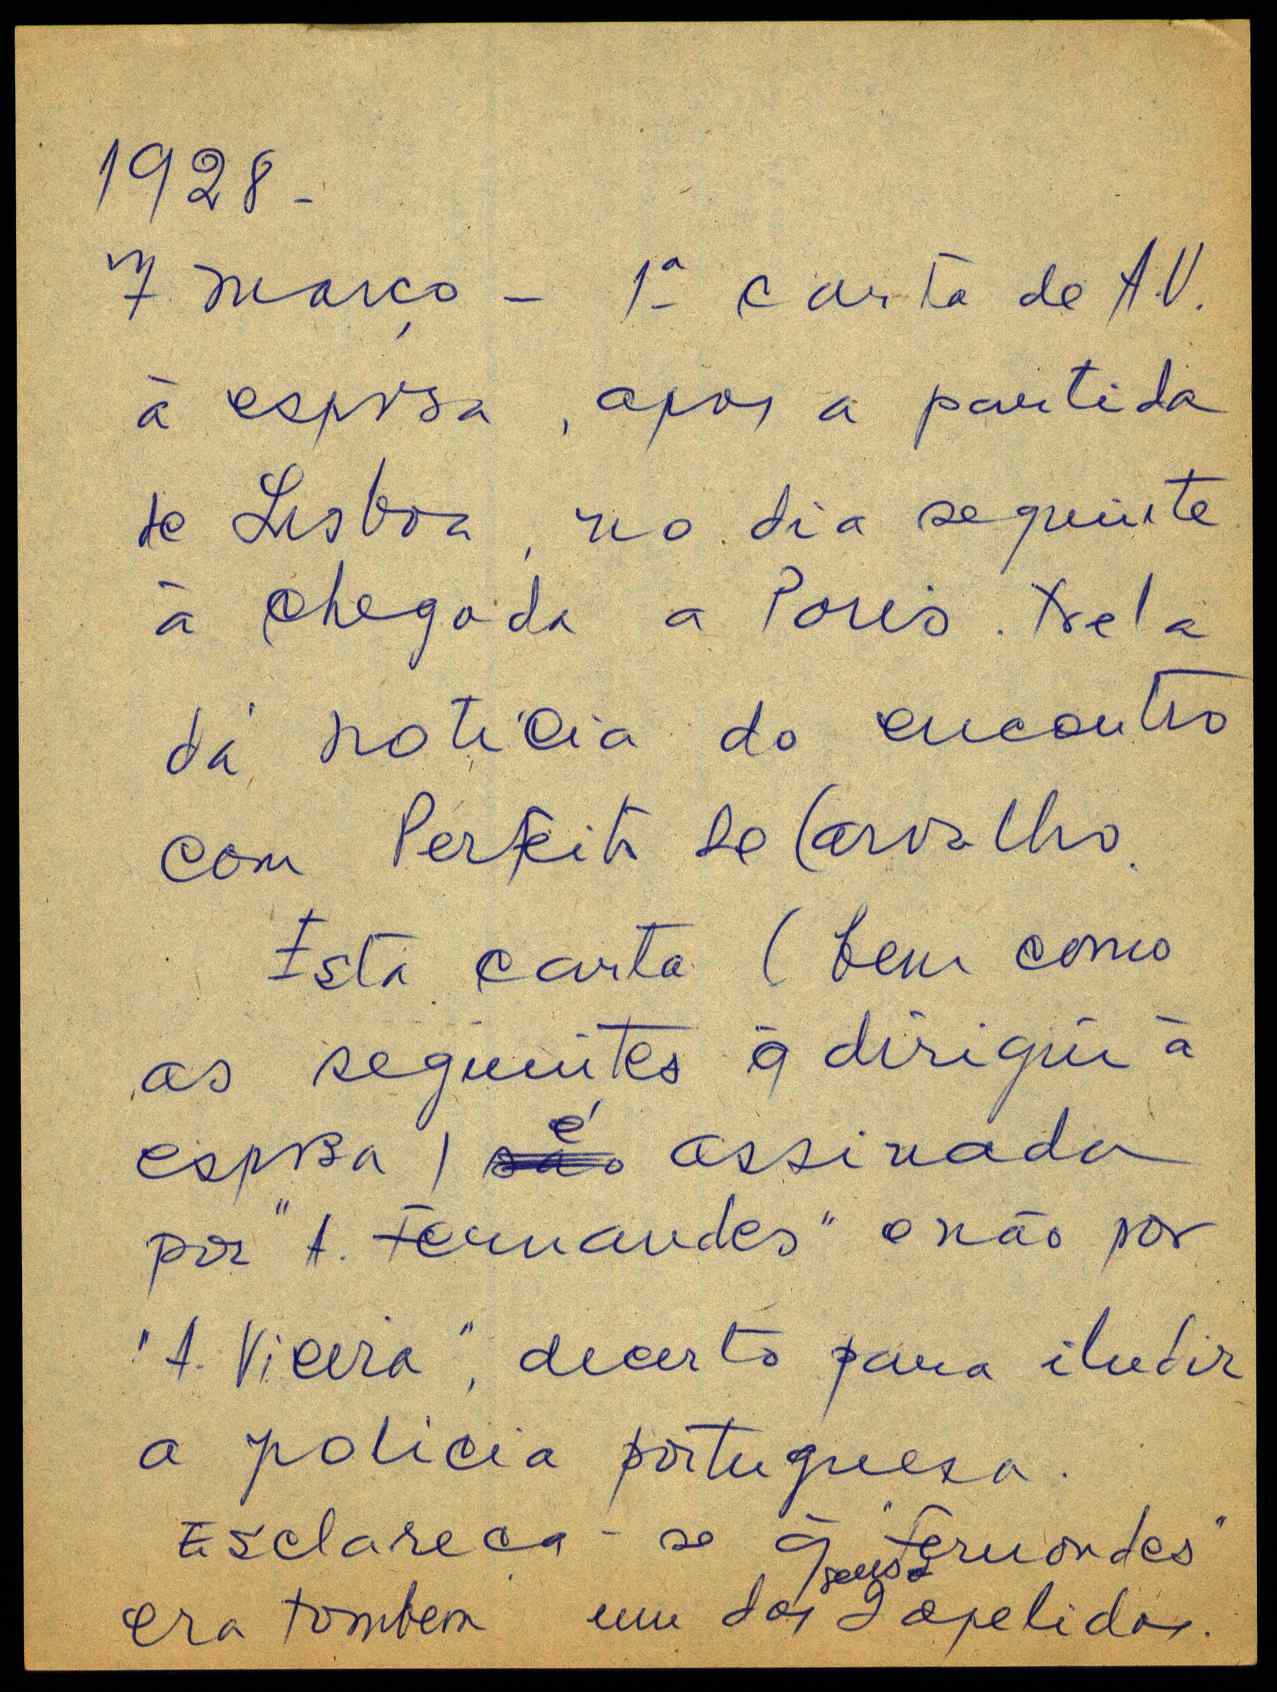 1928 -
7 março - 1ª carta de A.V.
à esposa, após a partida
de Lisboa, no dia seguinte
à chegada a Paris. Nela
dá notícia do encontro
com Perfeito de Carvalho.
Esta carta (bem como
as seguintes q̃ dirigiu à
esposa) é assinada
por "A. Fernandes" e não por
"A. Vieira", decerto para iludir
a polícia portuguesa.
Esclareça-se q̃ "Fernandes"
era tambem um dos seus 2 apelidos.